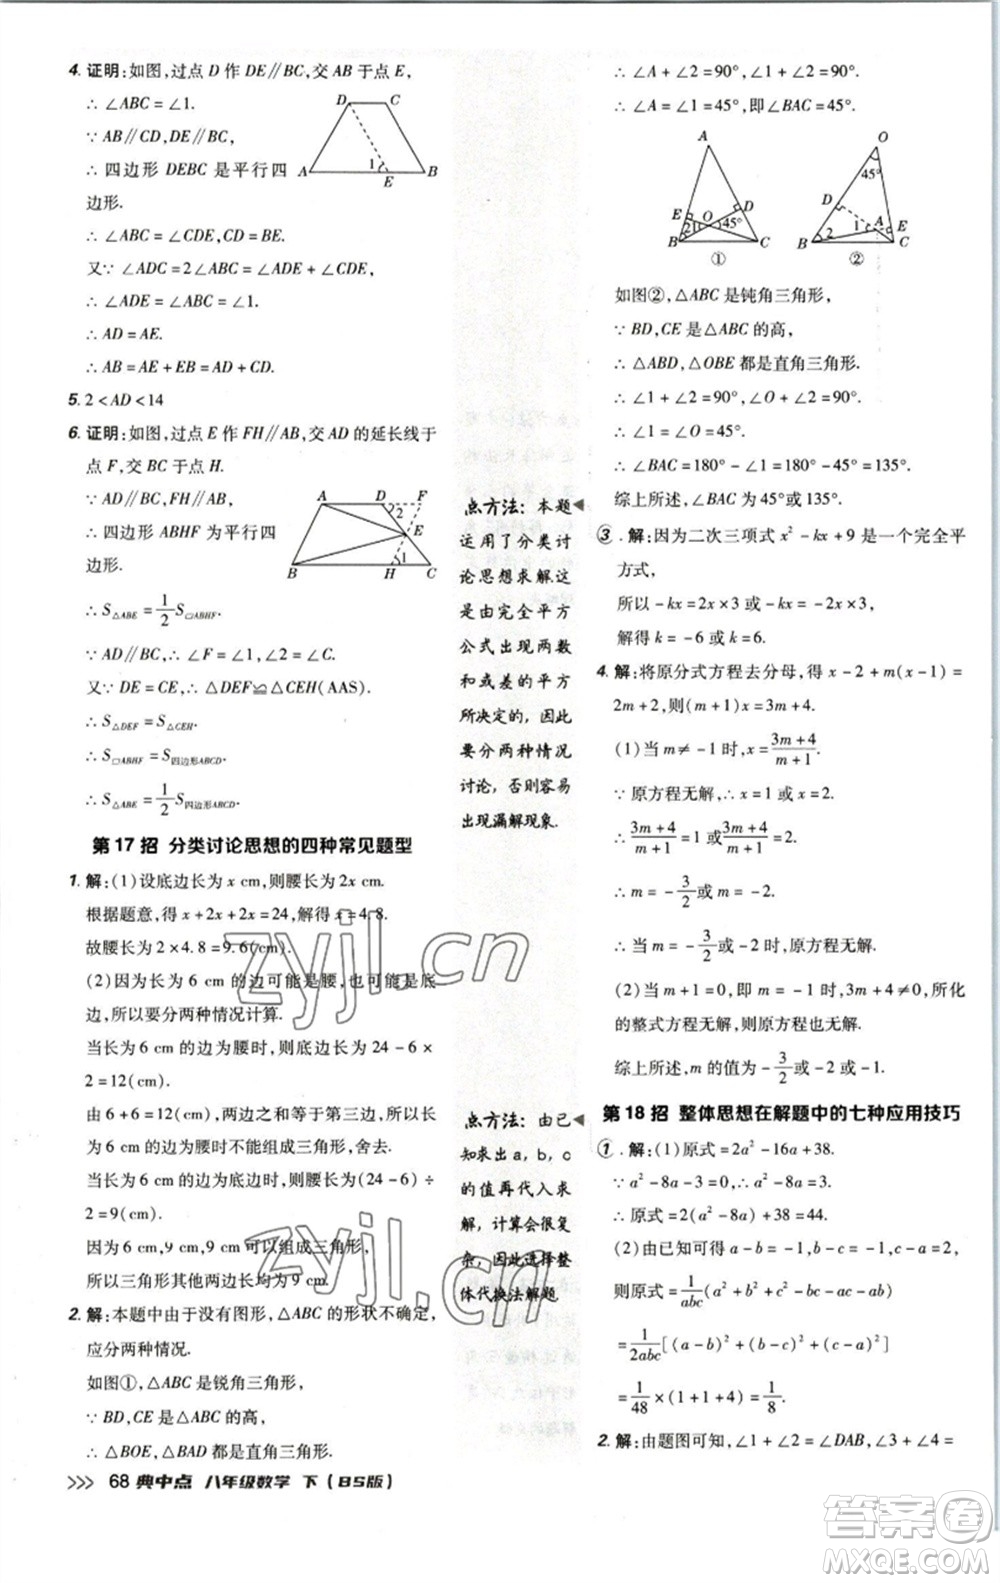 4. 证明:如图,过点 D 作 DE∥BC,交 AB 于点 E,
∴ ∠ABC = ∠1.
∵ AB∥CD,DE∥BC,
∴ 四边形 DEBC 是平行四
边形.
∴ ∠ABC = ∠CDE,DE = BC,CD = EB.
又∵ ∠ADC = 2∠ABC,∴ ∠ADE = ∠ABC.
∴ ∠ADE = ∠1.
∴ AD = AE.
∴ AB = AE + EB = AD + CD.
D C
A 1 E B
5. 2 < AD < 14
6. 证明:如图,过点 E 作 FH∥AB,交 AD 的延长线于
点 F,交 BC 于点 H.
∵ AD∥BC,FH∥AB,
∴ 四边形 ABHF 为平行四
边形.
A D F
2 E
B H 1 C
∴ S△ABE = 1/2 S▱ABHF.
∵ AD∥BC,∴ ∠F = ∠1,∠2 = ∠C.
又∵ DE = CE,∴ △DEF≌△CEH(AAS).
∴ S△DEF = S△CEH.
∴ S▱ABHF = S四边形ABCD.
∴ S△ABE = 1/2 S四边形ABCD.
第 17 招 分类讨论思想的四种常见题型
1. 解:(1)设底边长为 x cm,则腰长为 2x cm.
根据题意,得 x + 2x + 2x = 24,解得 x = 4.8.
故腰长为 2 × 4.8 = 9.6(cm).
(2)因为长为 6 cm 的边可能是腰,也可能是底
边,所以要分两种情况计算.
当长为 6 cm 的边为腰时,则底边长为 24 - 6 ×
2 = 12(cm).
由 6 + 6 = 12,两边之和等于第三边,所以长为
6 cm 的边为腰时不能组成三角形,故腰长不能为
6 cm.
当长为 6 cm 的边为底边时,则腰长为(24 - 6) ÷
2 = 9(cm).
因为 6 cm,9 cm,9 cm 可以组成三角形,
所以三角形其他两边长均为 9 cm.
2. 解:本题中由于没有图形,△ABC 的形状不确定,
应分两种情况.
如图①,△ABC 是锐角三角形,
∵ BD,CE 是△ABC 的高,
∴ △BOE,△BAD 都是直角三角形.
68 典中点 八年级数学 下(BS版)
点方法: 本题
运用了分类讨
论思想求解,这
是由完全平方
公式出现两数
和或差的平方
所决定的,因此
要分两种情况
讨论,否则容易
出现漏解现象.
点方法: 由已
知求出 a, b, c
的值再代入求
解,计算会很复
杂,因此选择整
体代换法解题.
∴ ∠A + ∠2 = 90°,∠1 + ∠2 = 90°.
∴ ∠A = ∠1 = 45°,即∠BAC = 45°.
A
E O D
21 45°
B C
①
O
45°
D
1 A E
B 2 C
②
如图②,△ABC 是钝角三角形,
∵ BD,CE 是△ABC 的高,
∴ △ABD,△OBE 都是直角三角形.
∴ ∠1 + ∠2 = 90°,∠O + ∠2 = 90°.
∴ ∠1 = ∠O = 45°.
∴ ∠BAC = 180° - ∠1 = 180° - 45° = 135°.
综上所述,∠BAC 为 45°或 135°.
3. 解:因为二次三项式 x² - kx + 9 是一个完全平
方式,
所以 -kx = 2x × 3 或 -kx = -2x × 3,
解得 k = -6 或 k = 6.
4. 解:将原分式方程去分母,得 x - 2 + m(x - 1) =
2m + 2,则(m + 1)x = 3m + 4.
(1)当 m ≠ -1 时,x = (3m + 4)/(m + 1).
∵ 原方程无解,∴ x = 1 或 x = 2.
∴ (3m + 4)/(m + 1) = 1 或 (3m + 4)/(m + 1) = 2.
∴ m = -3/2 或 m = -2.
∴ 当 m = -3/2 或 m = -2 时,原方程无解.
(2)当 m + 1 = 0,即 m = -1 时,3m + 4 ≠ 0,所化
的整式方程无解,则原方程无解.
综上所述,m 的值为 -3/2 或 -2 或 -1.
第 18 招 整体思想在解题中的七种应用技巧
1. 解:(1)原式 = 2a² - 16a + 38.
∵ a² - 8a - 3 = 0,∴ a² - 8a = 3.
∴ 原式 = 2(a² - 8a) + 38 = 44.
(2)由已知可得 a - b = -2,b - c = 1,a - c = -1,
则原式 = 1/abc (a² + b² + c² - bc - ac - ab)
= 1/2abc [(a - b)² + (b - c)² + (a - c)²]
= 1/48 × (4 + 1 + 1) = 1/8.
2. 解:由题图可知,∠1 = ∠DAB,∠A + ∠C =
zyjl.cn
zyjl.cn
答案圈
MXQE.COM